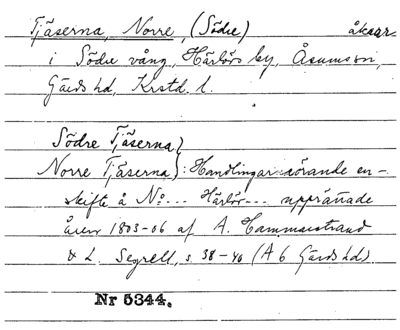 Tjäserna, Norre, (Södre) åkrar
i Södre vång, Härlövs by, Åsumsn,
Gärds hd, Krstd. l.
Södre Tjäserna)
Norre Tjäserna): Handlingar rörande en-
skifte å No... Härlöv... upprättade
åren 1803-06 af A. Hammarstrand
& L. Segrell, s. 38-40 (A 6 Gärds hd)
Nr 5344.